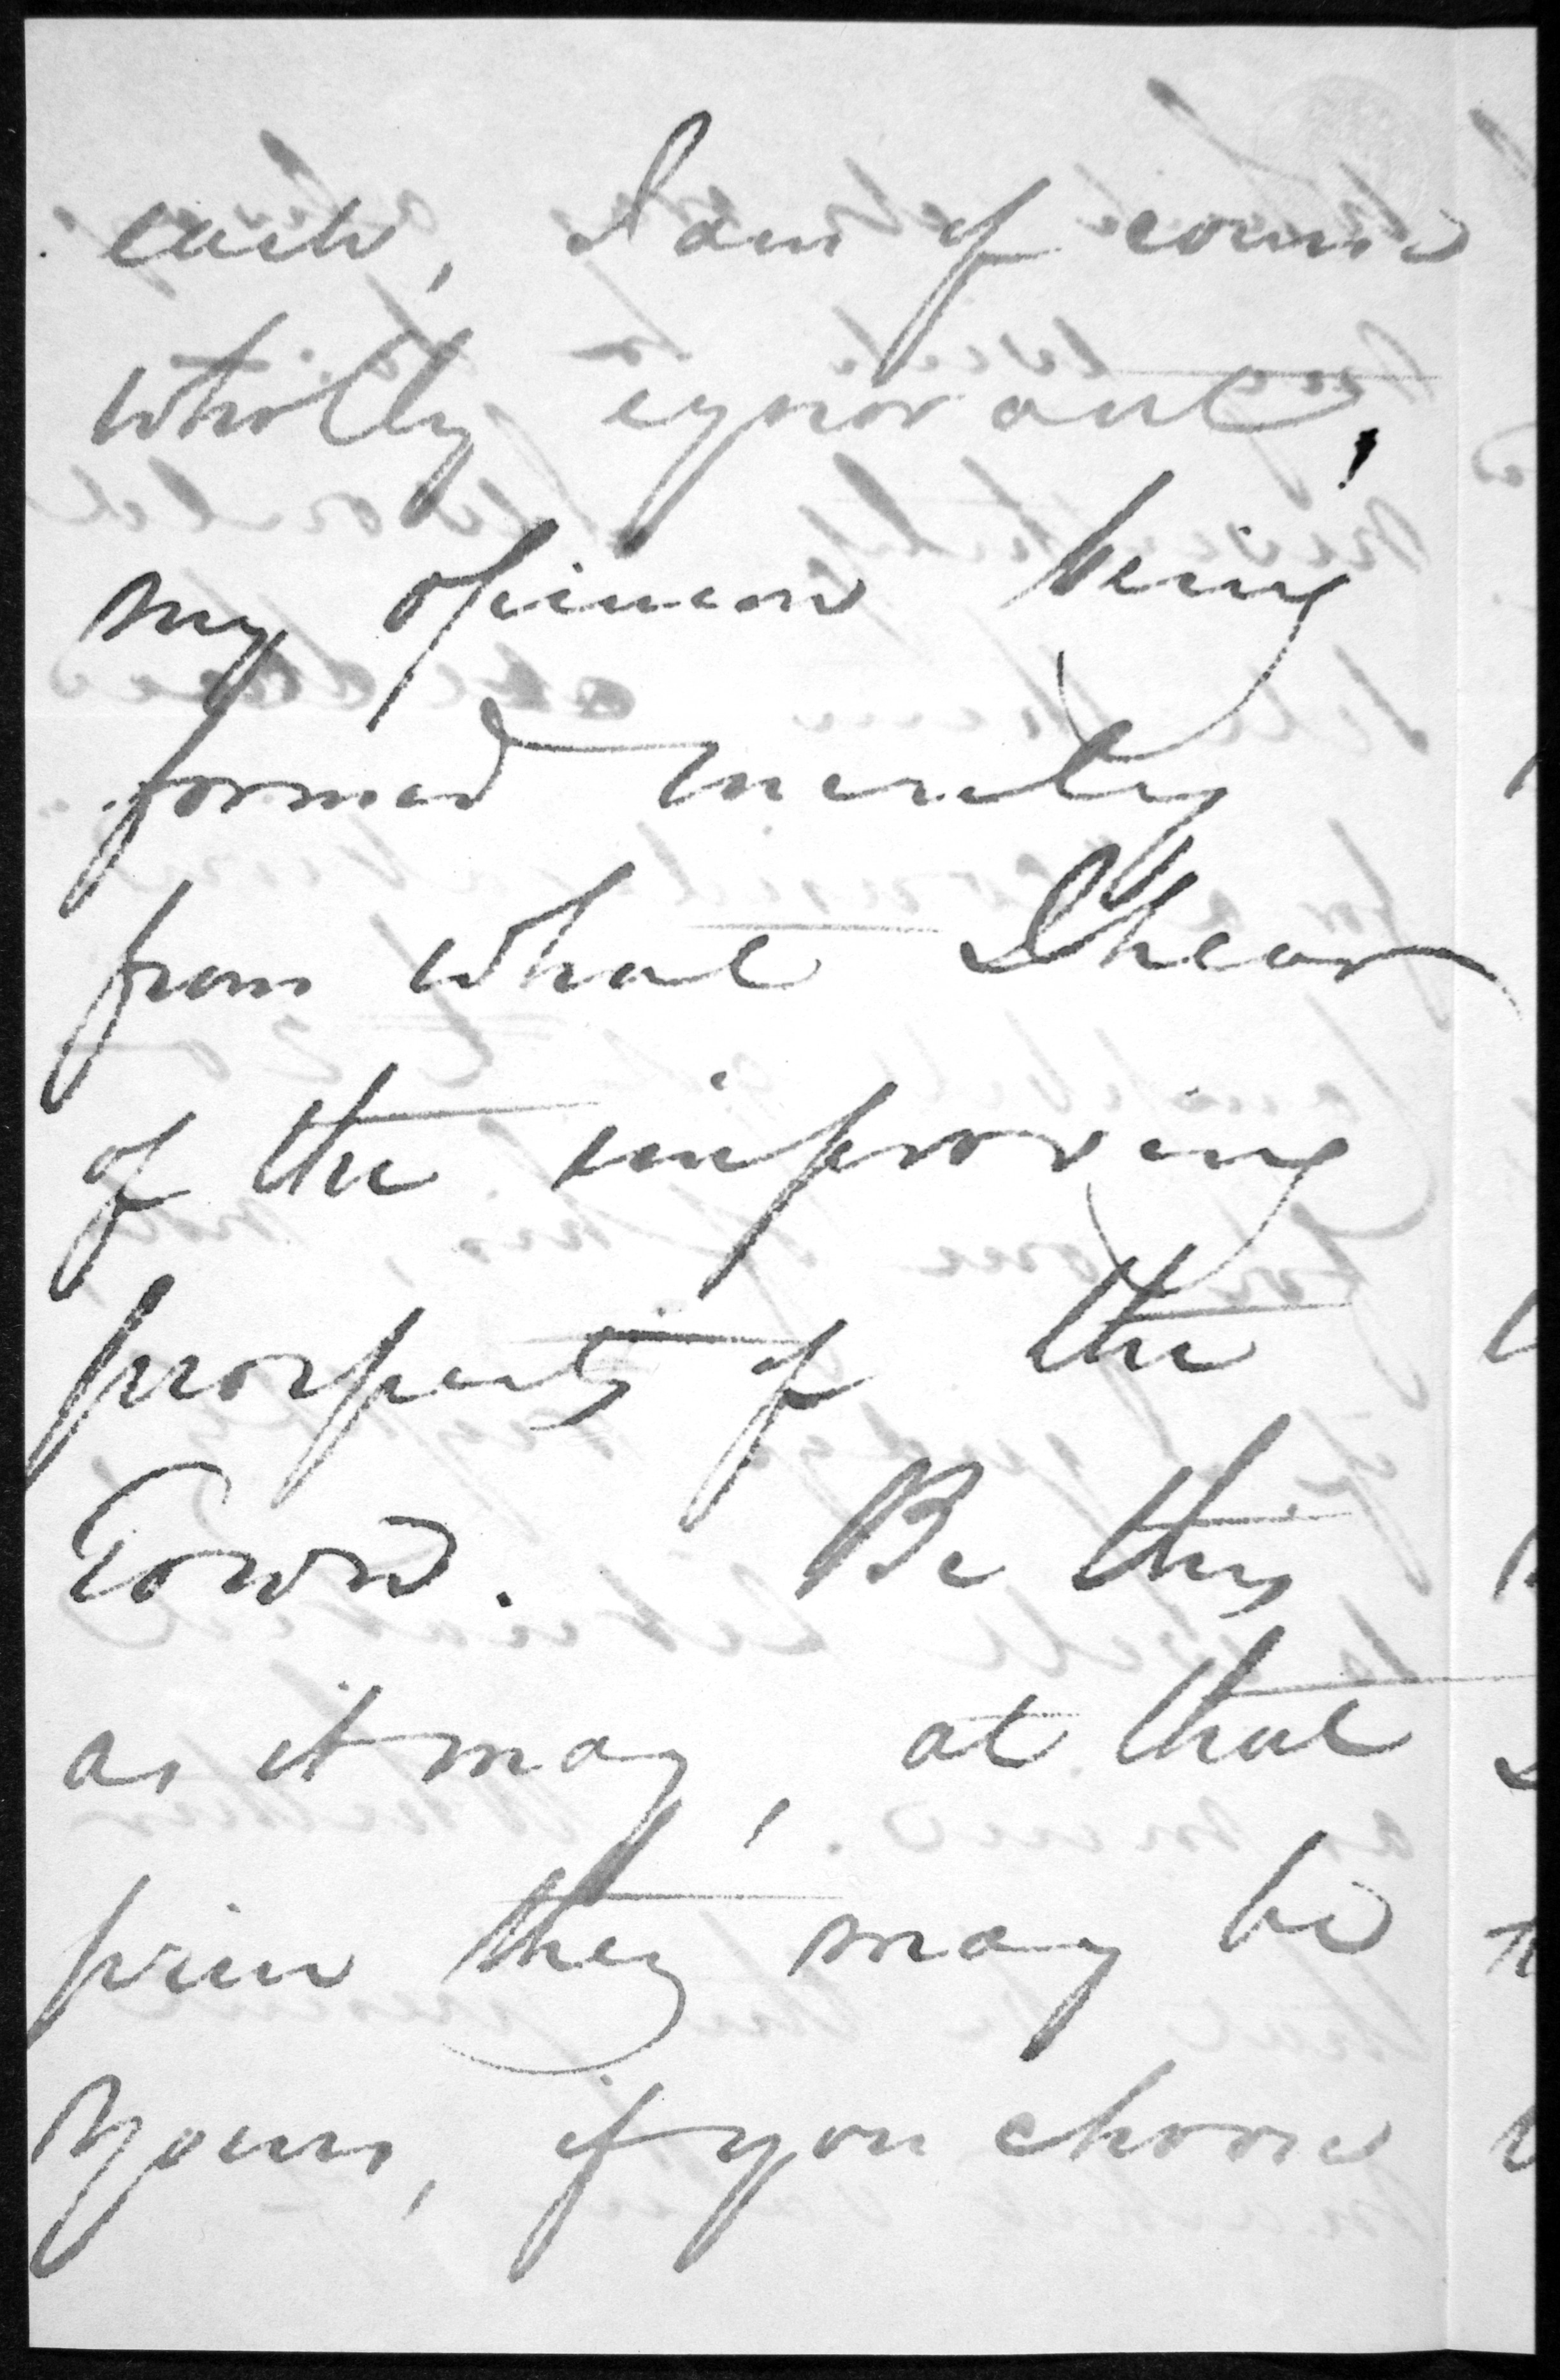 each, I am of course
wholly ignorant,
my opinion being
formed merely
from what I hear
of the improving
prosperity of the
Town. Be this
as it may, at that
price they may be
Yours, if you choose